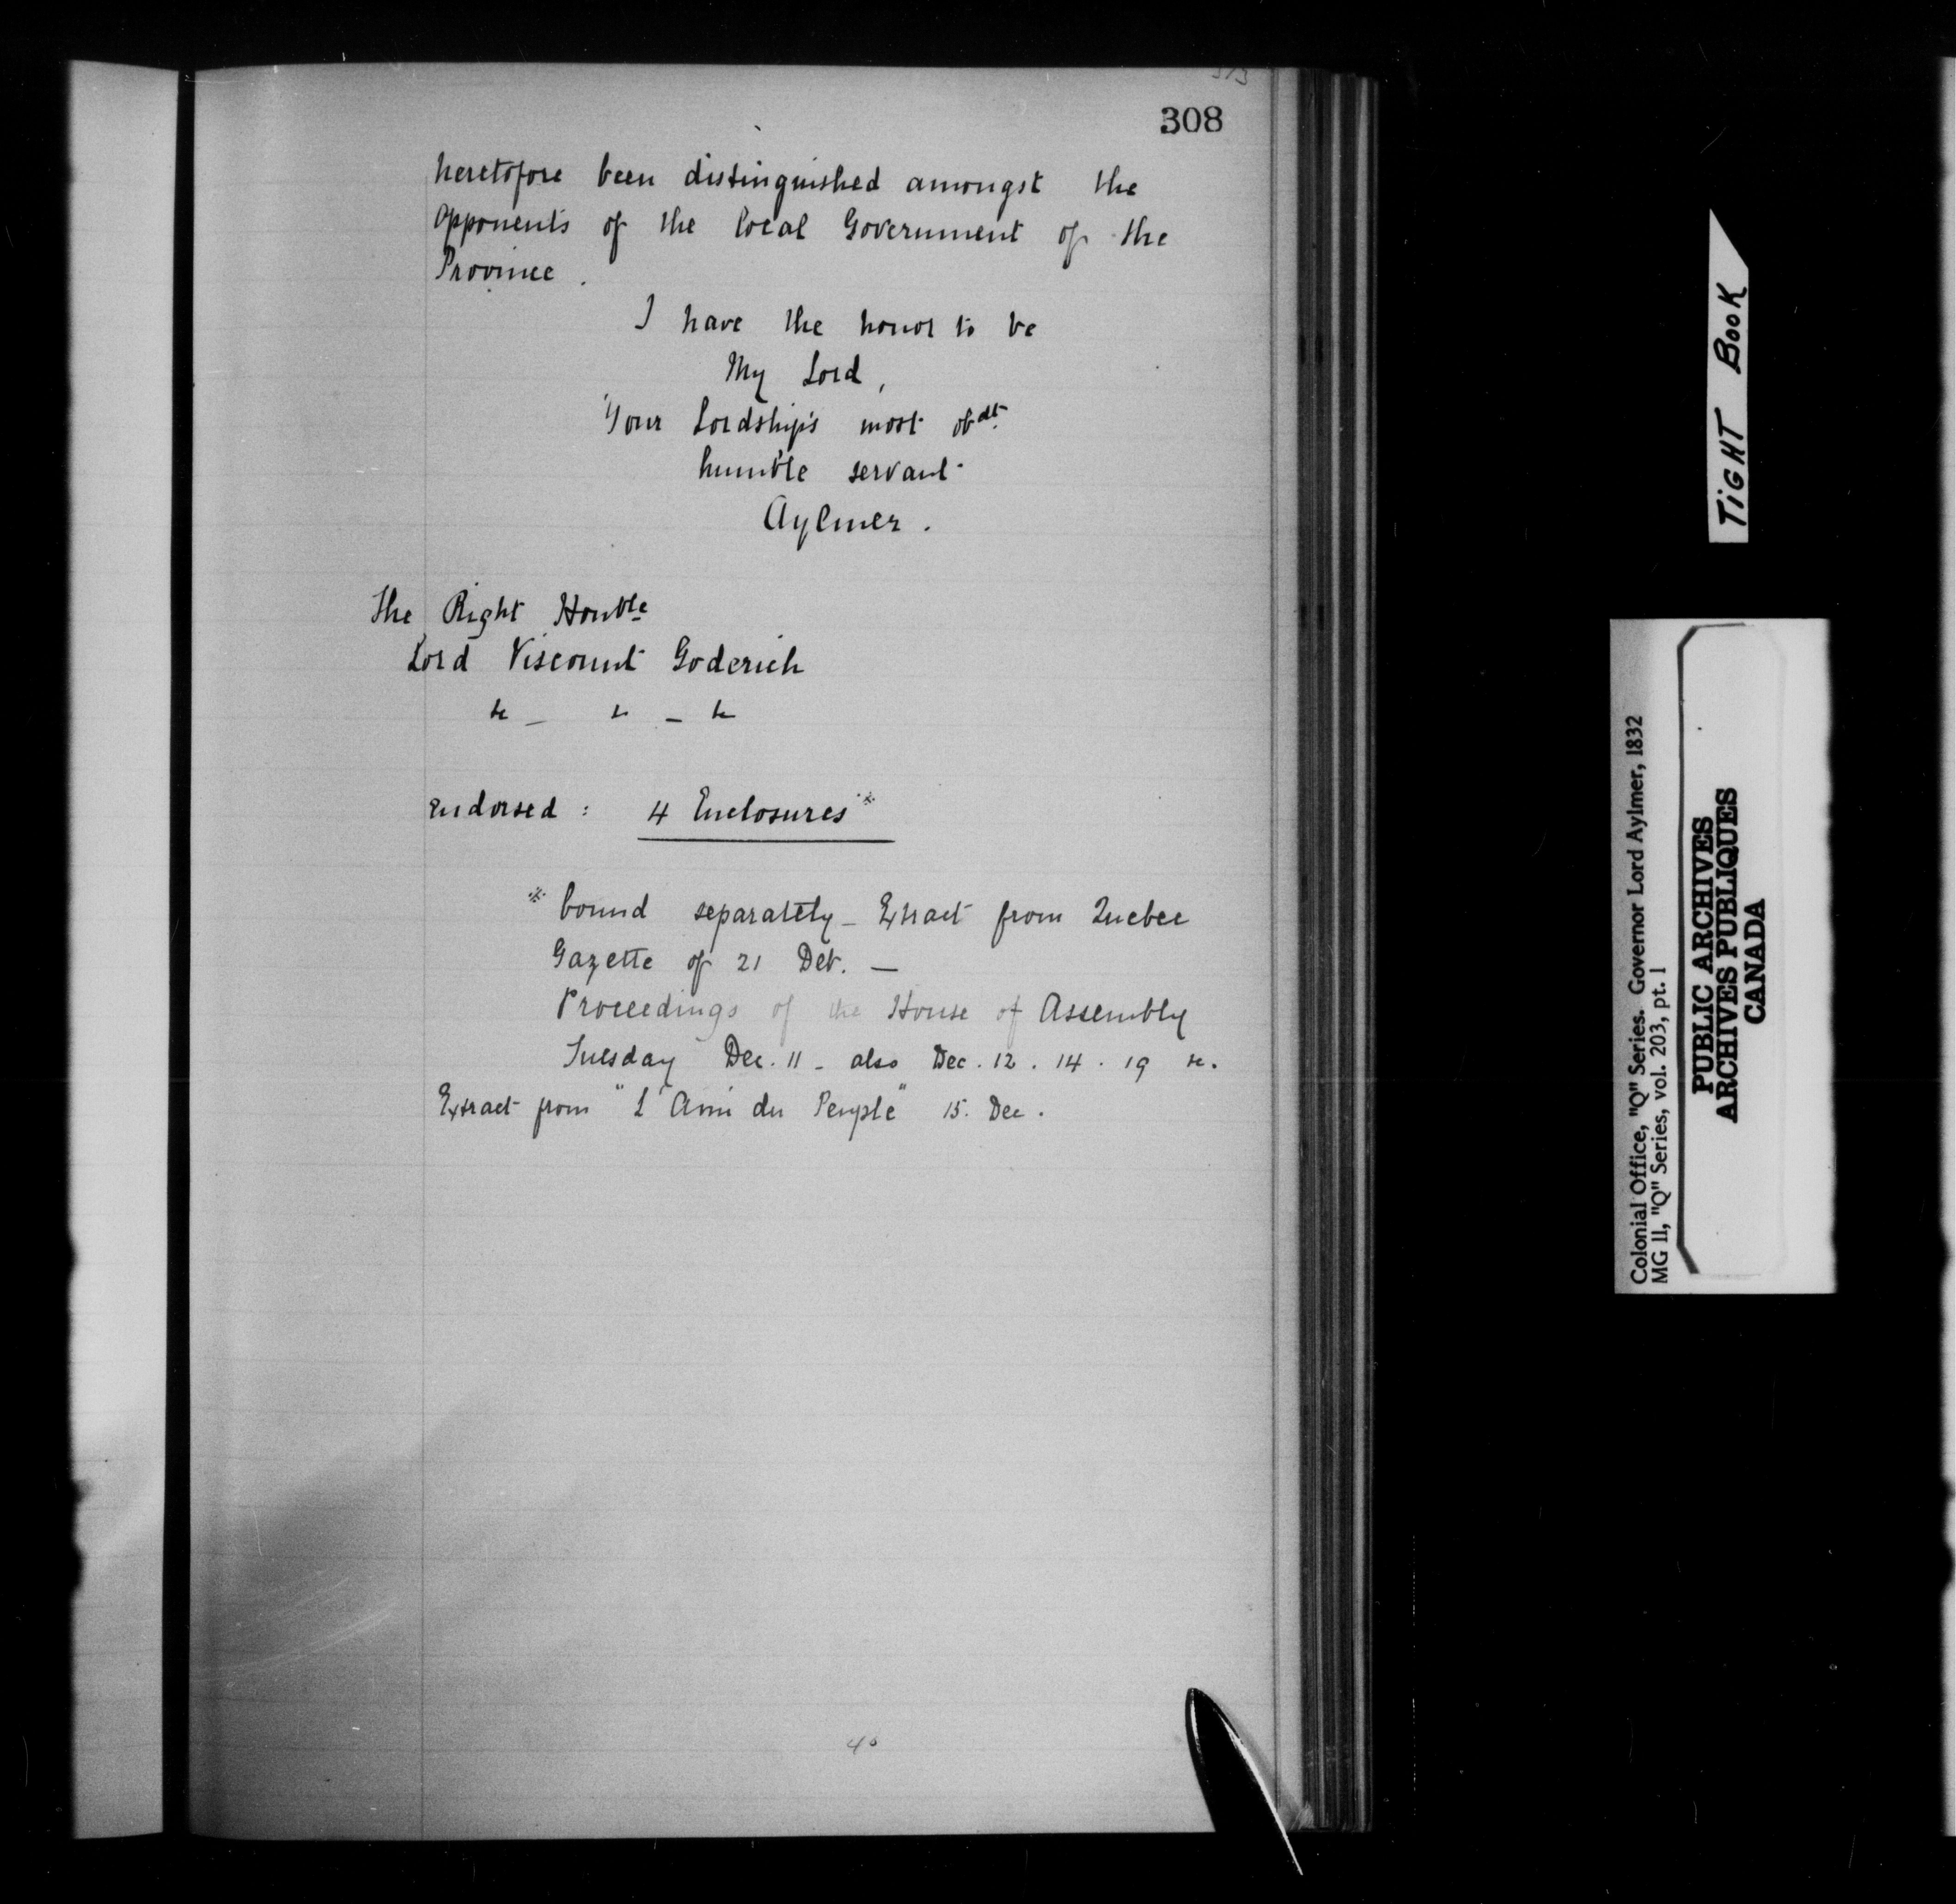 308
heretofore been distinguished amongst the
opponents of the local Government of the
Province.
I have the honor to be
My Lord,
Your Lordship's most obdt
humble servant
Aylmer.
The Right Honble
Lord Viscount Goderich
&c _ &c _ &c
Endorsed : 4 Enclosures*
* bound separately _ Extract from Quebec
Gazette of 21 Dec. —
Proceedings of the House of Assembly
Tuesday Dec. 11 - also Dec. 12 . 14 . 19 &c.
Extract from "L'Ami du Peuple" 15. Dec.
TIGHT BOOK
Colonial Office, "Q" Series. Governor Lord Aylmer, 1832
MG 11, "Q" Series, vol. 203, pt. 1
PUBLIC ARCHIVES
ARCHIVES PUBLIQUES
CANADA